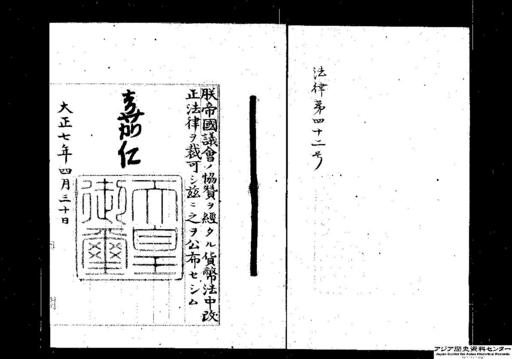 法律第四十二号
朕帝國議會ノ協贊ヲ經タル貨幣法中改
正法律ヲ裁可シ茲ニ之ヲ公布セシム
嘉仁
天皇
御璽
大正七年四月三十日
アジア歴史資料センター
Japan Center for Asian Historical Records